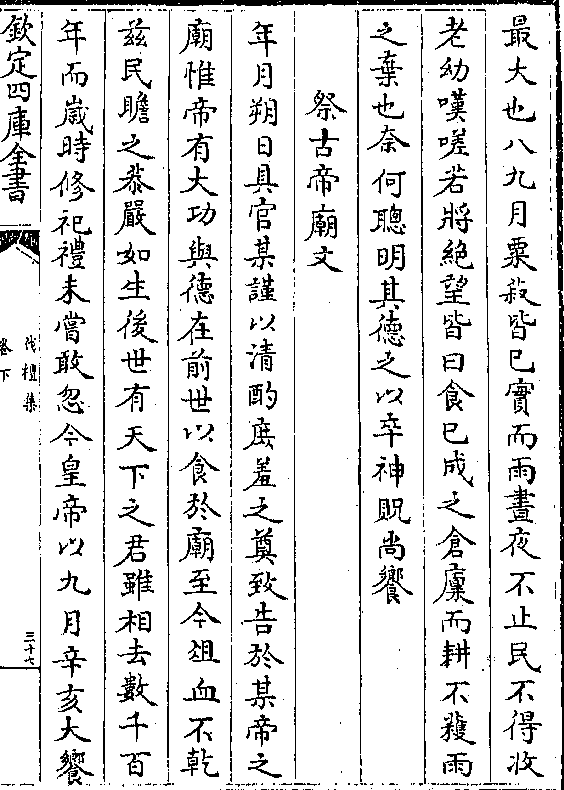 最大也八九月粟菽皆已實而雨晝夜不止民不得收
老幼嘆嗟若將絶望皆曰食已成之倉廩而耕不穫雨
之棄也奈何聰明其德之以卒神貺尚饗
祭古帝廟文
年月朔日具官某謹以清酌庶羞之奠致告於某帝之
廟惟帝有大功與德在前世以食於廟至今俎血不乾
兹民瞻之恭嚴如生後世有天下之君雖相去數千百
年而嵗時修祀禮未嘗敢忽今皇帝以九月辛亥大饗
欽定四庫全書
伐檀集
卷下
三十七